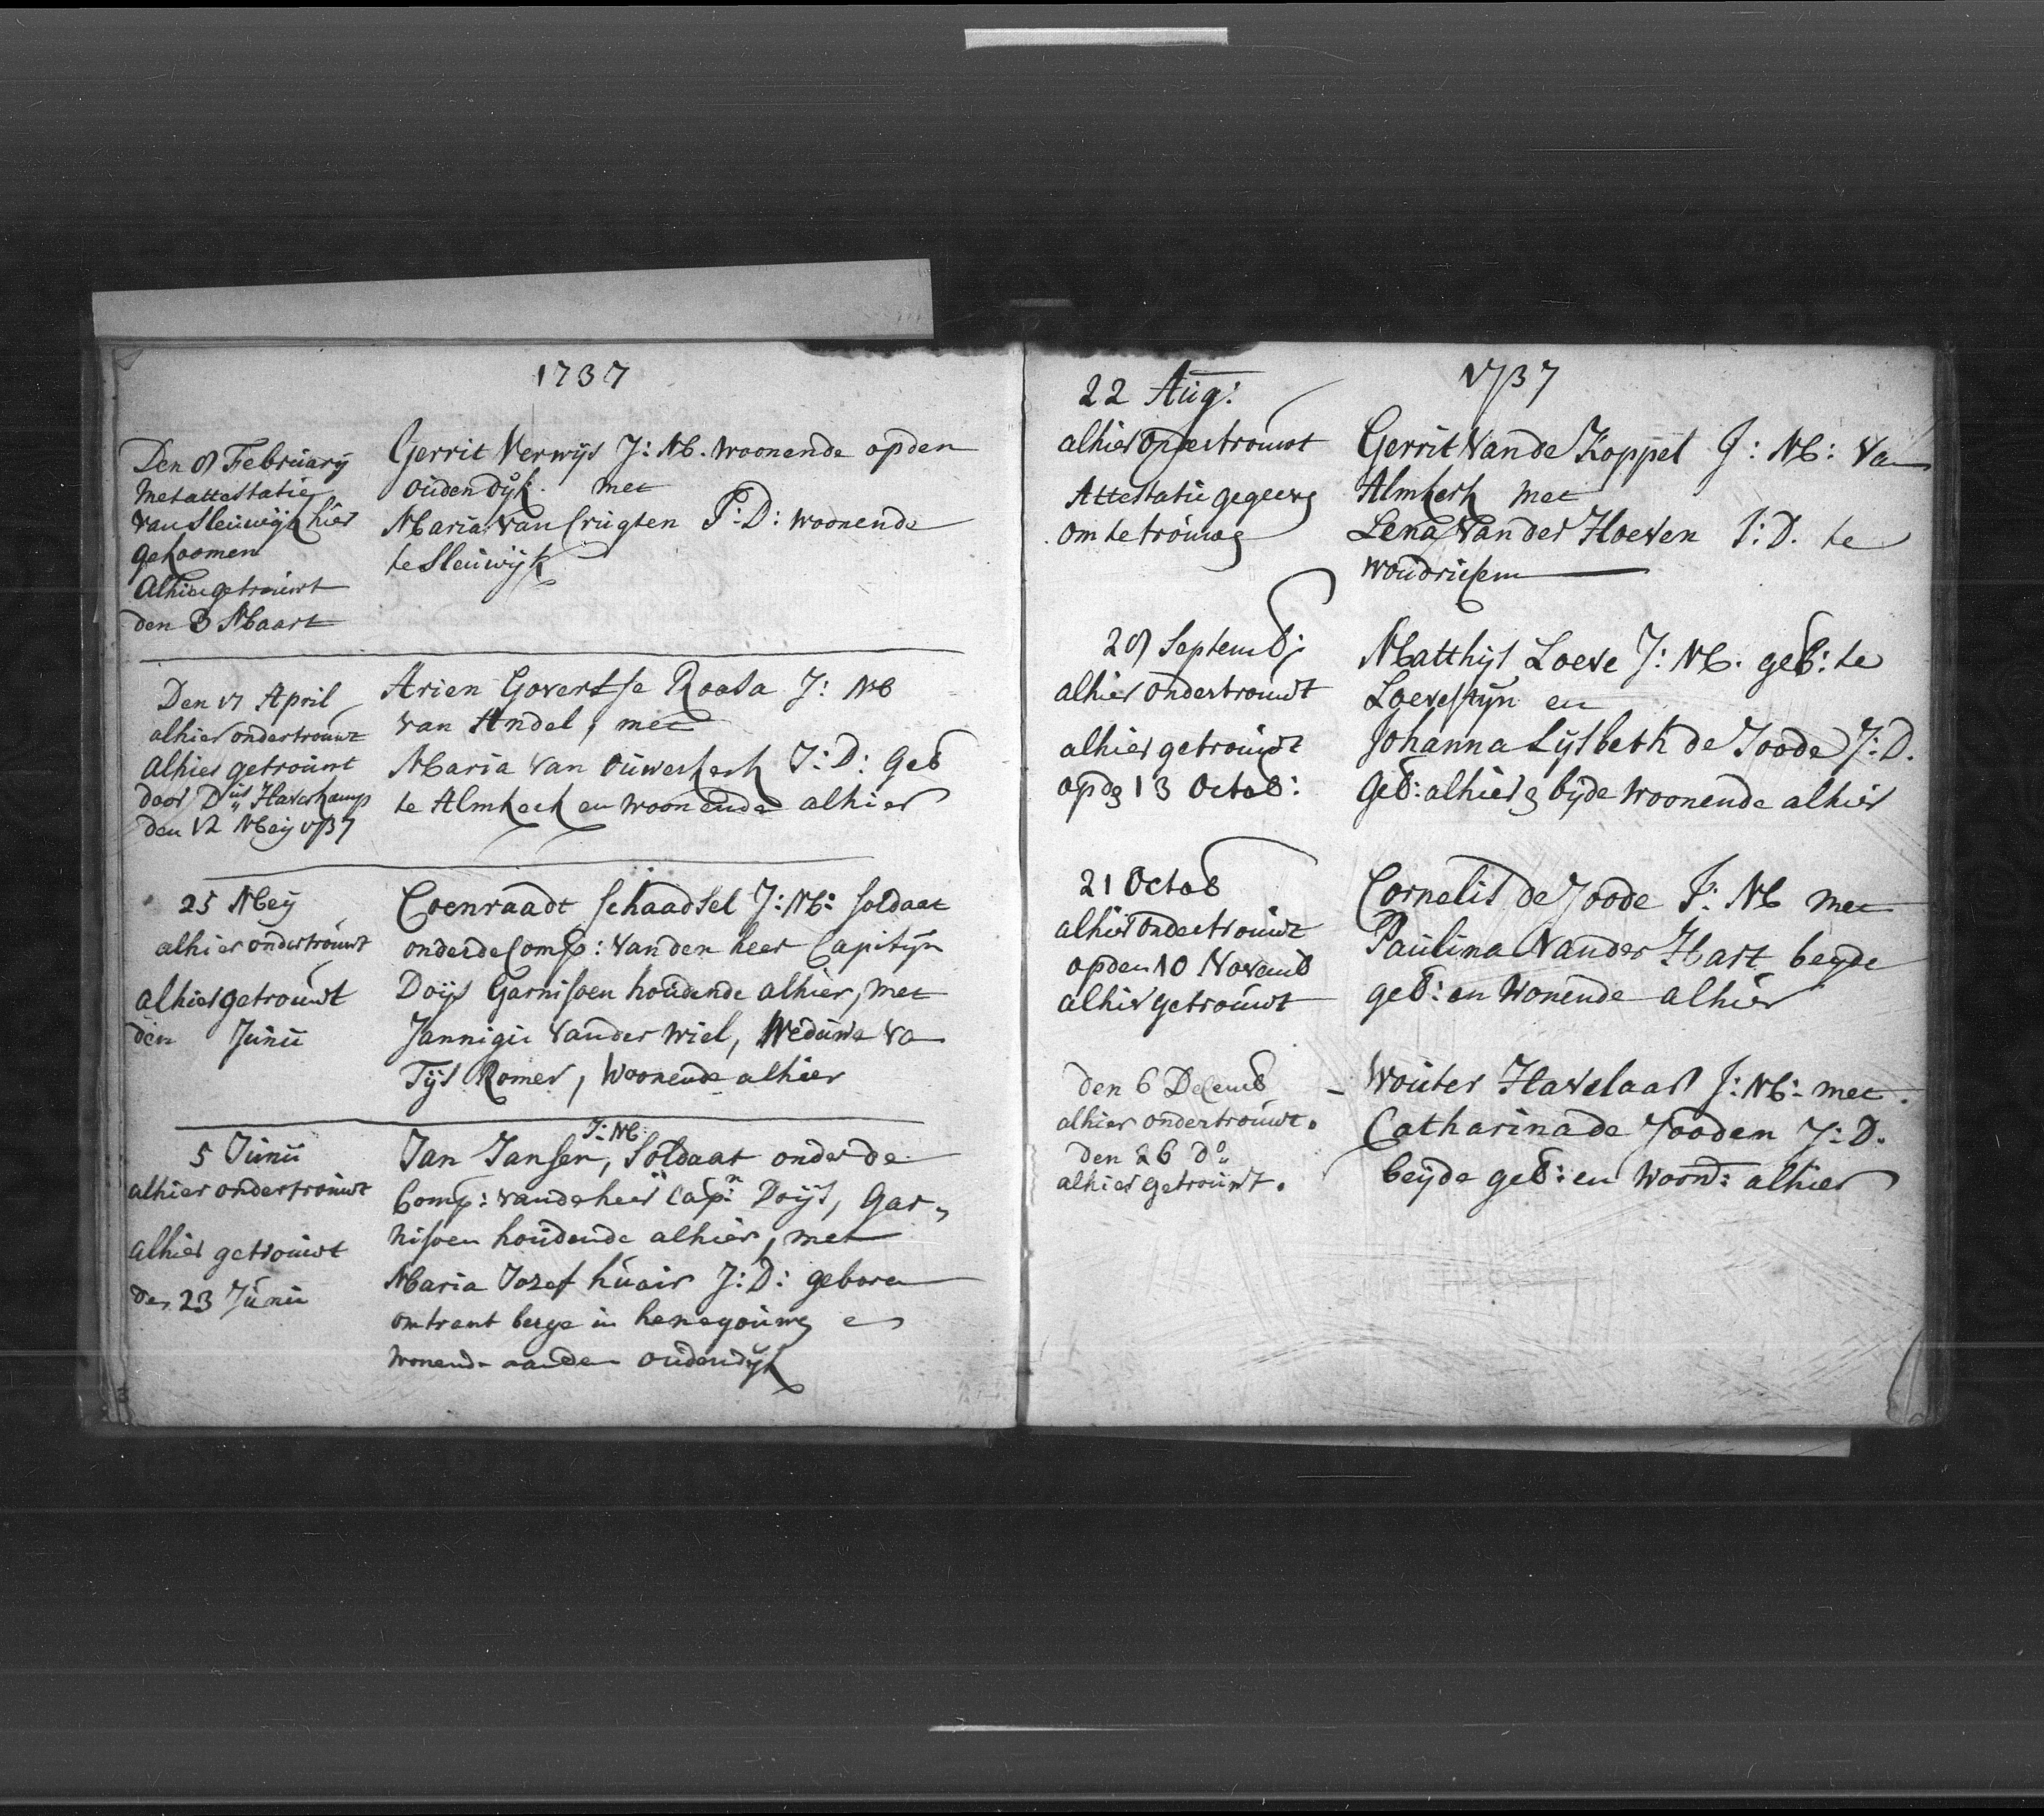 1737
Den 9 February
met attestatie
van Sleuwijk hier
gekoomen
Alhier getrouwt
den 3 Maart
Gerrit Verwijs J: M. woonende op den
ouden Dijk. met
Maria van Crugten J: D: woonende
te Sleuwijk
Den 17 April
alhier ondertrouwt
alhier getrouwt
door Dus Haverkamp
den 12 Meij 1737
Arien Govertse Roosa J: M
van Andel, met
Maria van Ouwerkerk J: D: Geb
te Almkerk en woonende alhier
25 Meij
alhier ondertrouwt
alhier getrouwt
den Junii
Coenraadt schaadsel J: M: soldaat
onder de Comp: van den heer Capitijn
Doijs Garnisoen houdende alhier, met
Jannigii vander wiel, Weduwe va
Tijs Romer, Woonende alhier
5 Junii
alhier ondertrouwt
alhier getrouwt
den 23 Junii
J: M:
Jan Jansen, Soldaat onder de
Comp: vande heer Capn: Doijs, Gar-
nisoen houdende alhier, met
Maria Jozef huair J: D: geboren
omtrent berge in henegouwen en
wonende aan den oudendijk
1737
22 Aug:
alhier ondertrouwt
Attestatie gegeven
om te trouwen
Gerrit Van de Koppel J: M: Van
Almkerk met
Lena Van der Hoeven J: D. te
woudrichem
29 Septemb:
alhier ondertrouwt
alhier getrouwt
op den 13 Octob:
Matthijs Loeve J: M. geb: te
Loevestijn en
Johanna Lijsbeth de Joode J: D.
Geb: alhier en bijde woonende alhier
21 Octob
alhier ondertrouwt
op den 10 Novemb
alhier getrouwt
Cornelis de Joode J: M met
Paulina Vander Hart beyde
geb: en Wonende alhier
den 6 Decemb
alhier ondertrouwt.
den 26 do
alhier getrouwt.
- Wouter Havelaar J: M: met.
Catharina de Jooden J: D.
beijde geb: en woon: alhier